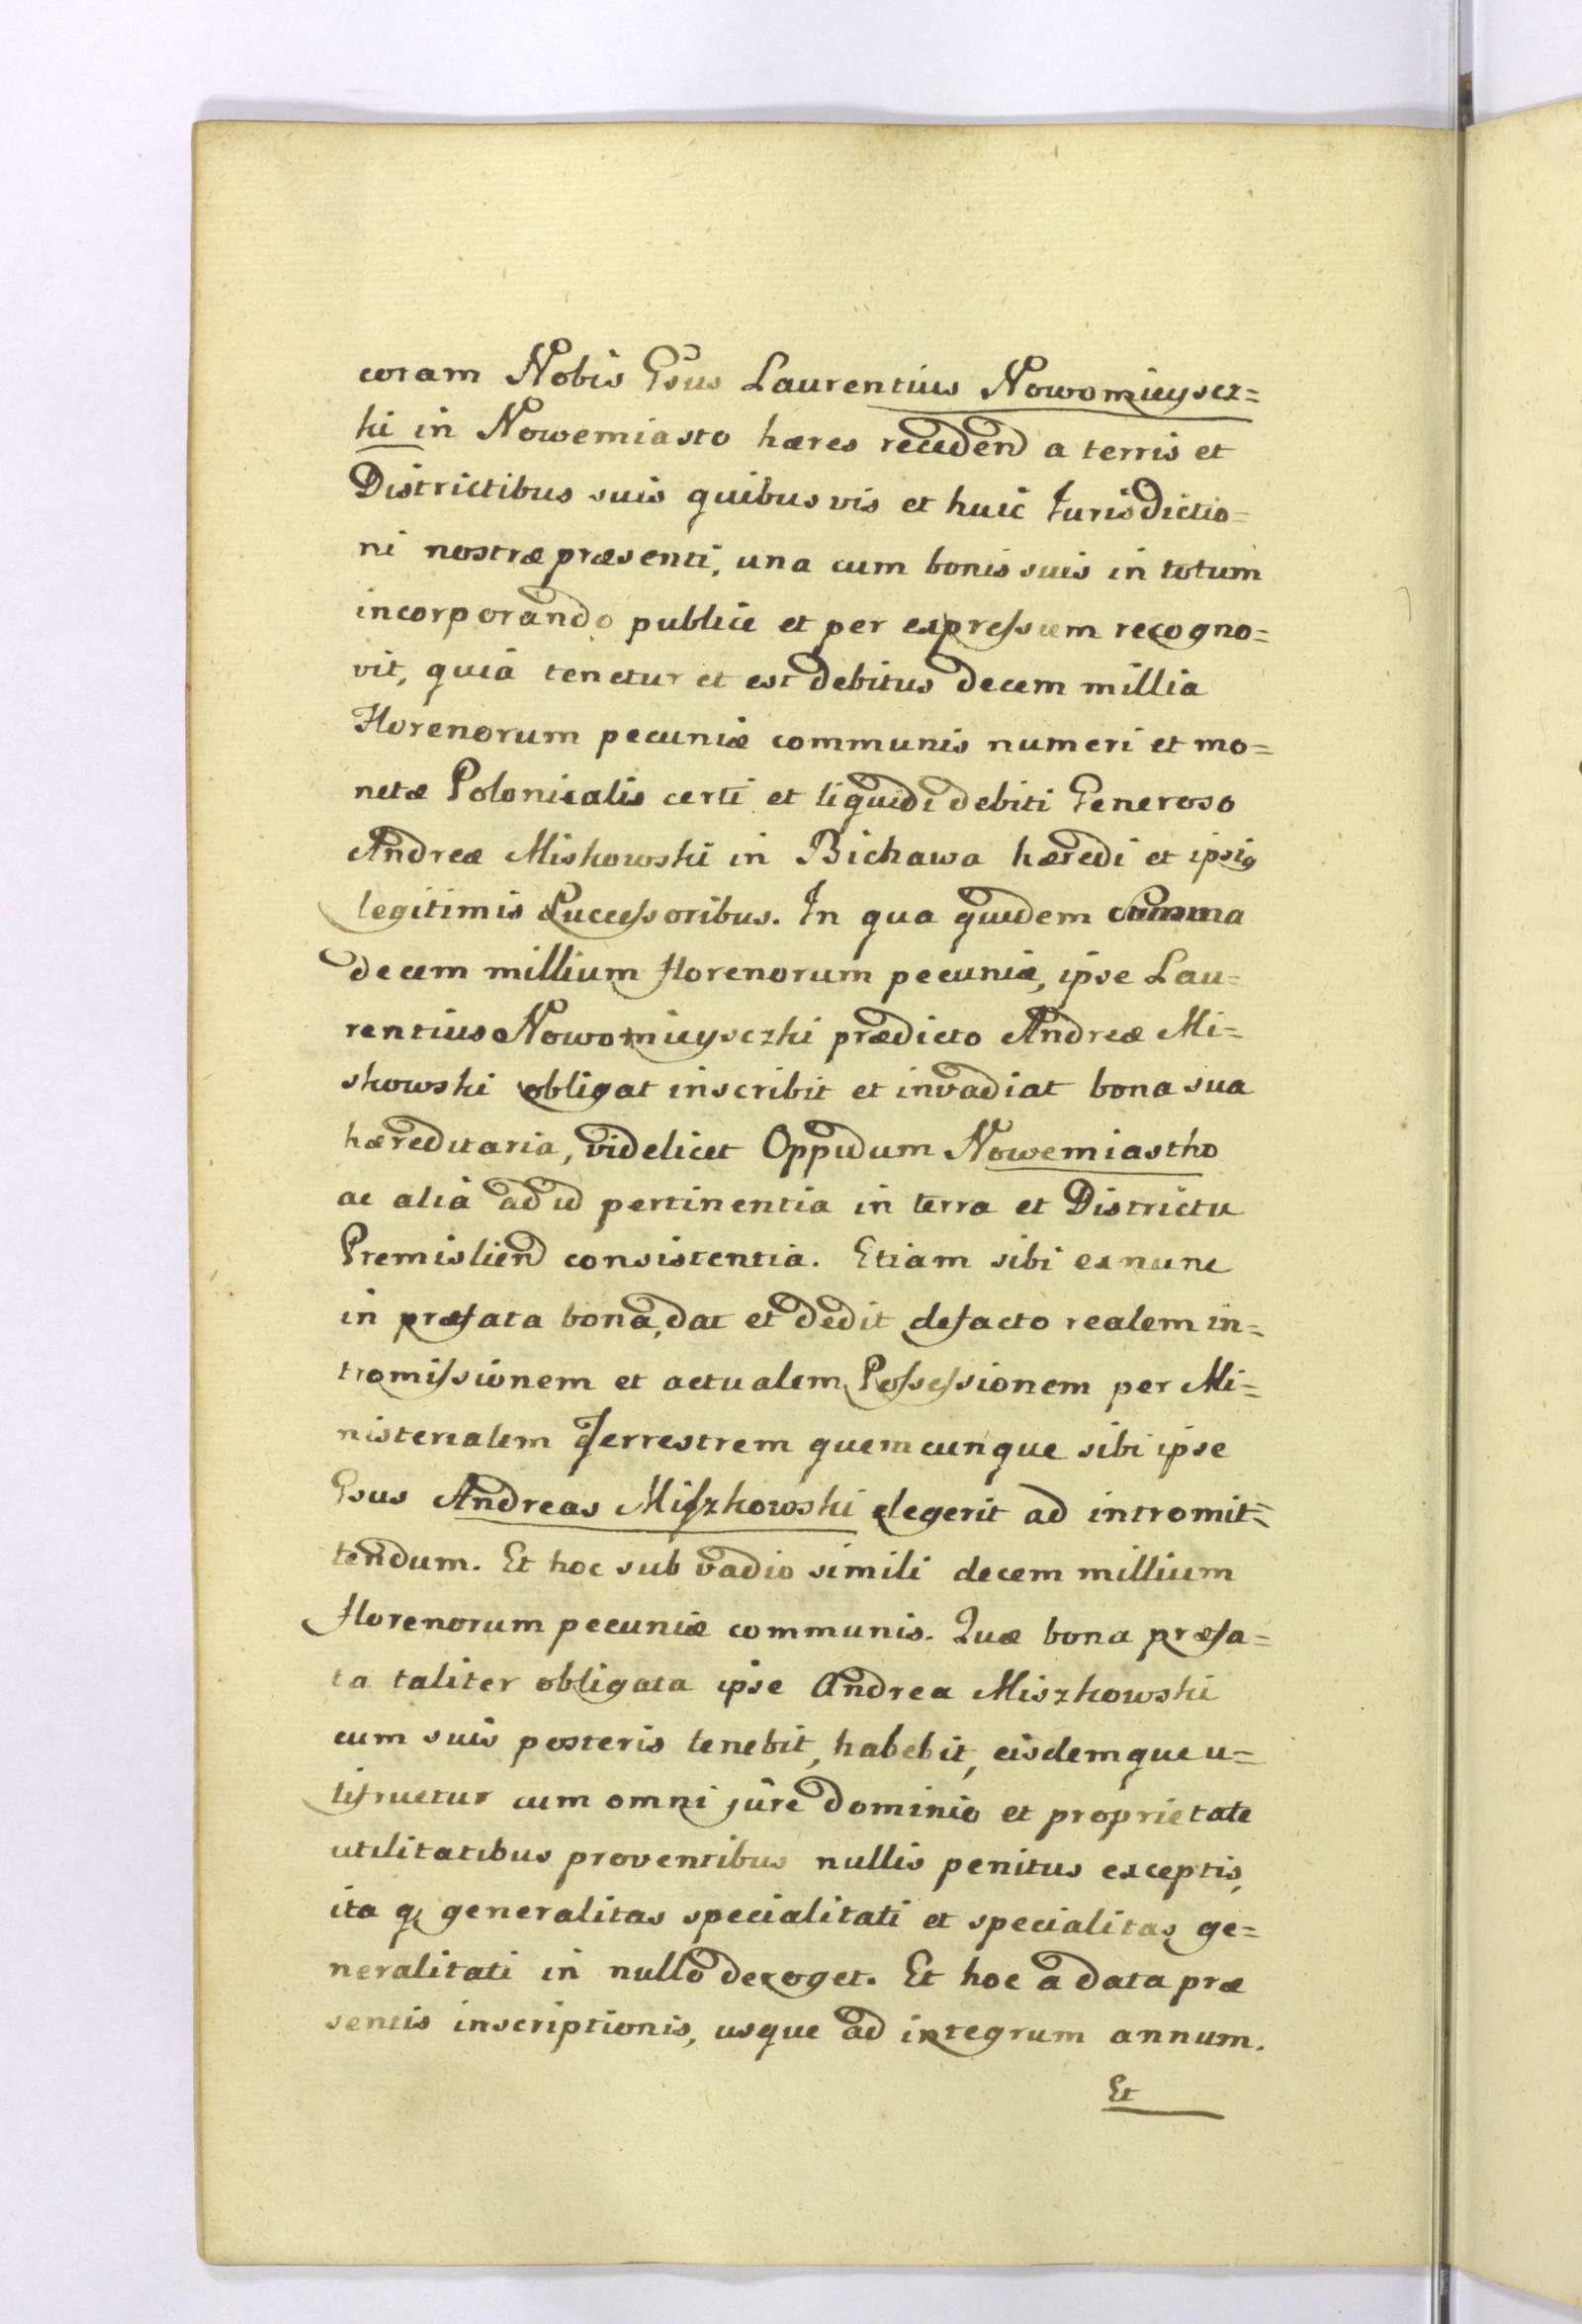 coram Nobis Gsus Laurentius Nowomieyscz=
ki in Nowemiasto hæres recedend a terris et
Districtibus suis quibusvis et huic Jurisdictio=
ni nostræ præsenti, una cum bonis suis in totum
incorporando publice et per expressum recogno=
vit, quia tenetur et est debitus decem millia
Florenorum pecuniæ communis numeri et mo=
netæ Polonicalis certi et liquidi debiti Generoso
Andreæ Miskowski in Bichawa hæredi et ipsig
legitimis Successoribus. In qua quidem Summa
decem millium florenorum pecuniæ, ipse Lau=
rentius Nowomieysczki prædicto Andreæ Mi=
skowski obligat inscribit et invadiat bona sua
hæreditaria, videlicet Oppidum Nowemiastho
ac alia ad id pertinentia in terra et Districtu
Premisliend consistentia. Etiam sibi ex nunc
in præfata bona, dat et dedit defacto realem in=
tromissionem et actualem Possessionem per Mi=
nisterialem Terrestrem quemcunque sibi ipse
Gsus Andreas Miszkowski elegerit ad intromit=
tendum. Et hoc sub vadio simili decem millium
florenorum pecuniæ communis. Quæ bona præfa=
ta taliter obligata ipse Andrea Miszkowski
cum suis posteris tenebit, habebit, eisdemque u=
tifruetur cum omni jure dominio et proprietate
utilitatibus proventibus nullis penitus exceptis,
ita q generalitas specialitati et specialitas ge=
neralitati in nullo deroget. Et hoc a data præ
sentis inscriptionis, usque ad integrum annum.
Et